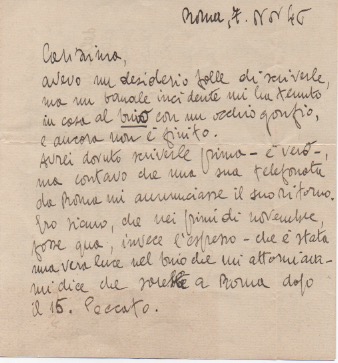 Roma, 7. Nov 46
Carissima,
avevo un desiderio folle di scriverle,
ma un banale incidente mi ha tenuto
in casa al buio con un occhio gonfio,
e ancora non è finito.
Avrei dovuto scriverle prima - è vero -,
ma contavo che una sua telefonata
da Roma mi annunciasse il suo ritorno.
che nei primi di novembre,
fosse qua, invece l'espresso - che è stata
una vera luce nel buio che mi attornia -
mi dice che sarebbe a Roma dopo
il 15. Peccato.